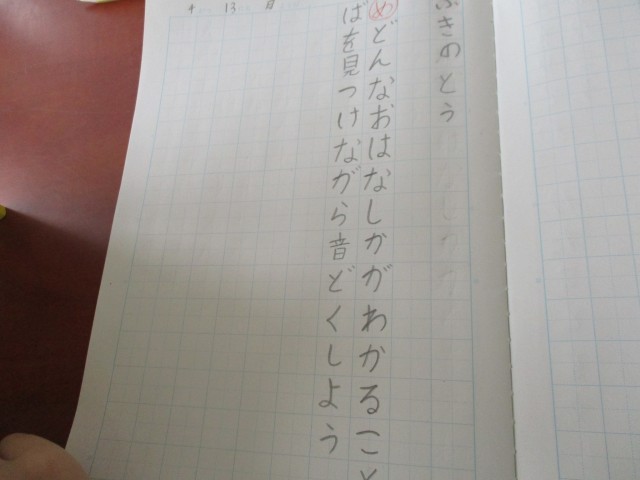 ふきのとう
めどんなおはなしかがわかること
ばを見つけながら音どくしよう
4 13